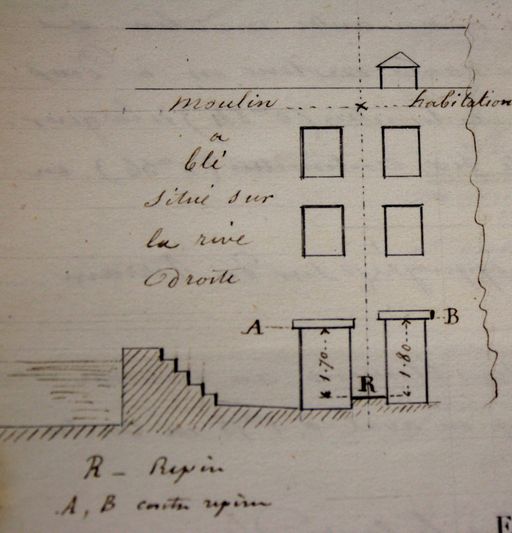 moulin habitation
a
blé
situé sur
la rive
droite
A B
1.70 1.80
R
R - Repin
A, B contre repin
F